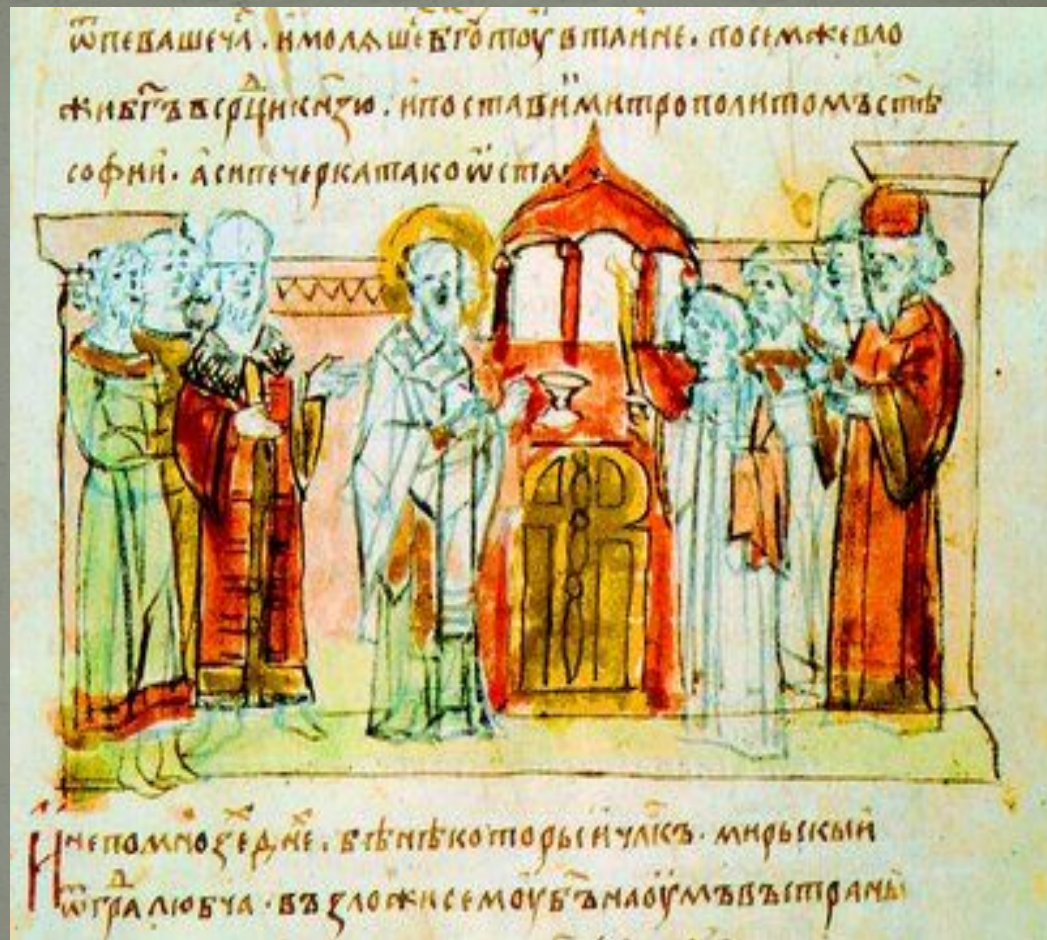 ѿпевашечл҃. имолѧшебг҃отоу втаине. посемжевло
жибг҃ъ всрⷣцикн҃зю. ипоставимитрополитомъст҃ѣ
софии. асипечеркатакоѿста
И непомнозехⷣне. бѣнѣкоторыи чл҃къ. мирьскыи
ѿграⷣлюбча. възложисемоубг҃ънаоумъвъстраны